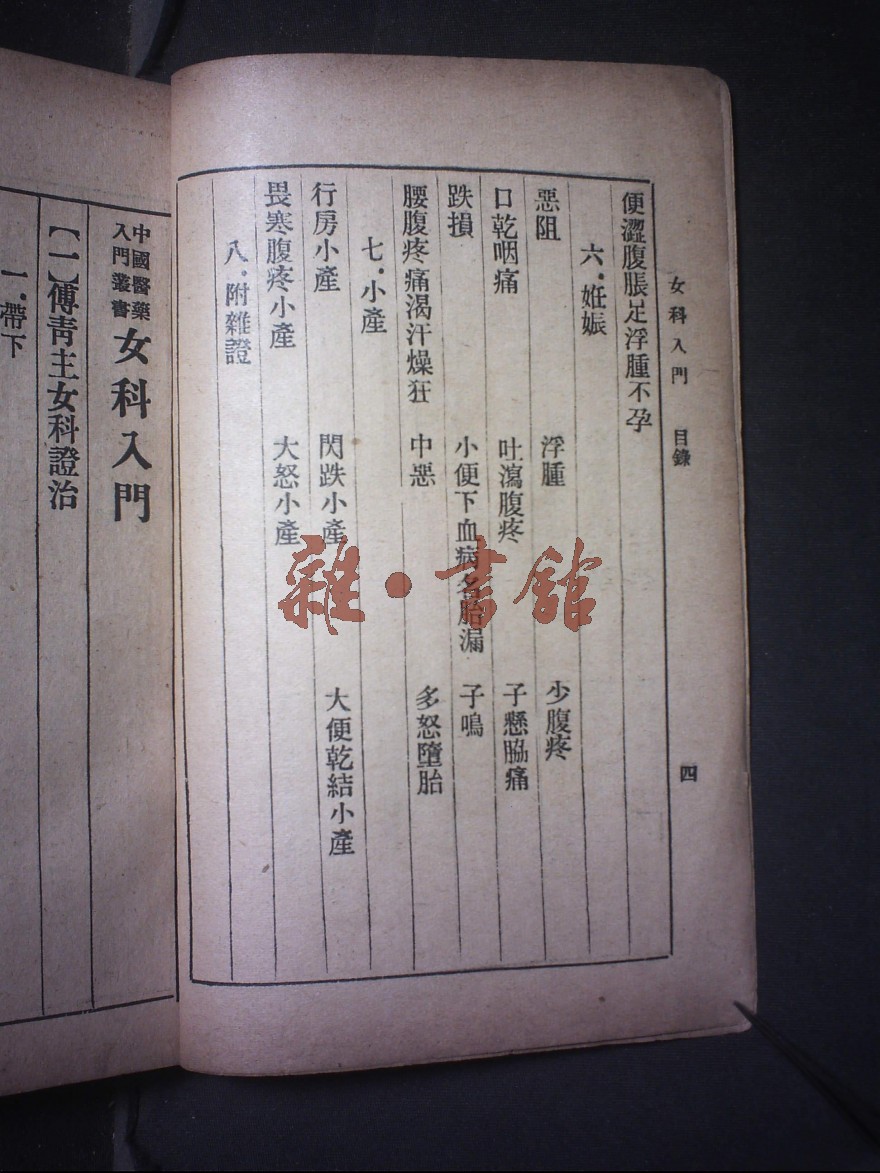 女科入門 目錄 四
便澀腹脹足浮腫不孕
六·妊娠
惡阻 浮腫 少腹疼
口乾咽痛 吐瀉腹疼 子懸脇痛
跌損 小便下血病名胎漏 子鳴
腰腹疼痛渴汗燥狂 中惡 多怒墮胎
七·小產
行房小產 閃跌小產 大便乾結小產
畏寒腹疼小產 大怒小產
八·附雜證
中國醫藥
入門叢書
女科入門
【一】傅青主女科證治
一·帶下
雜·書館